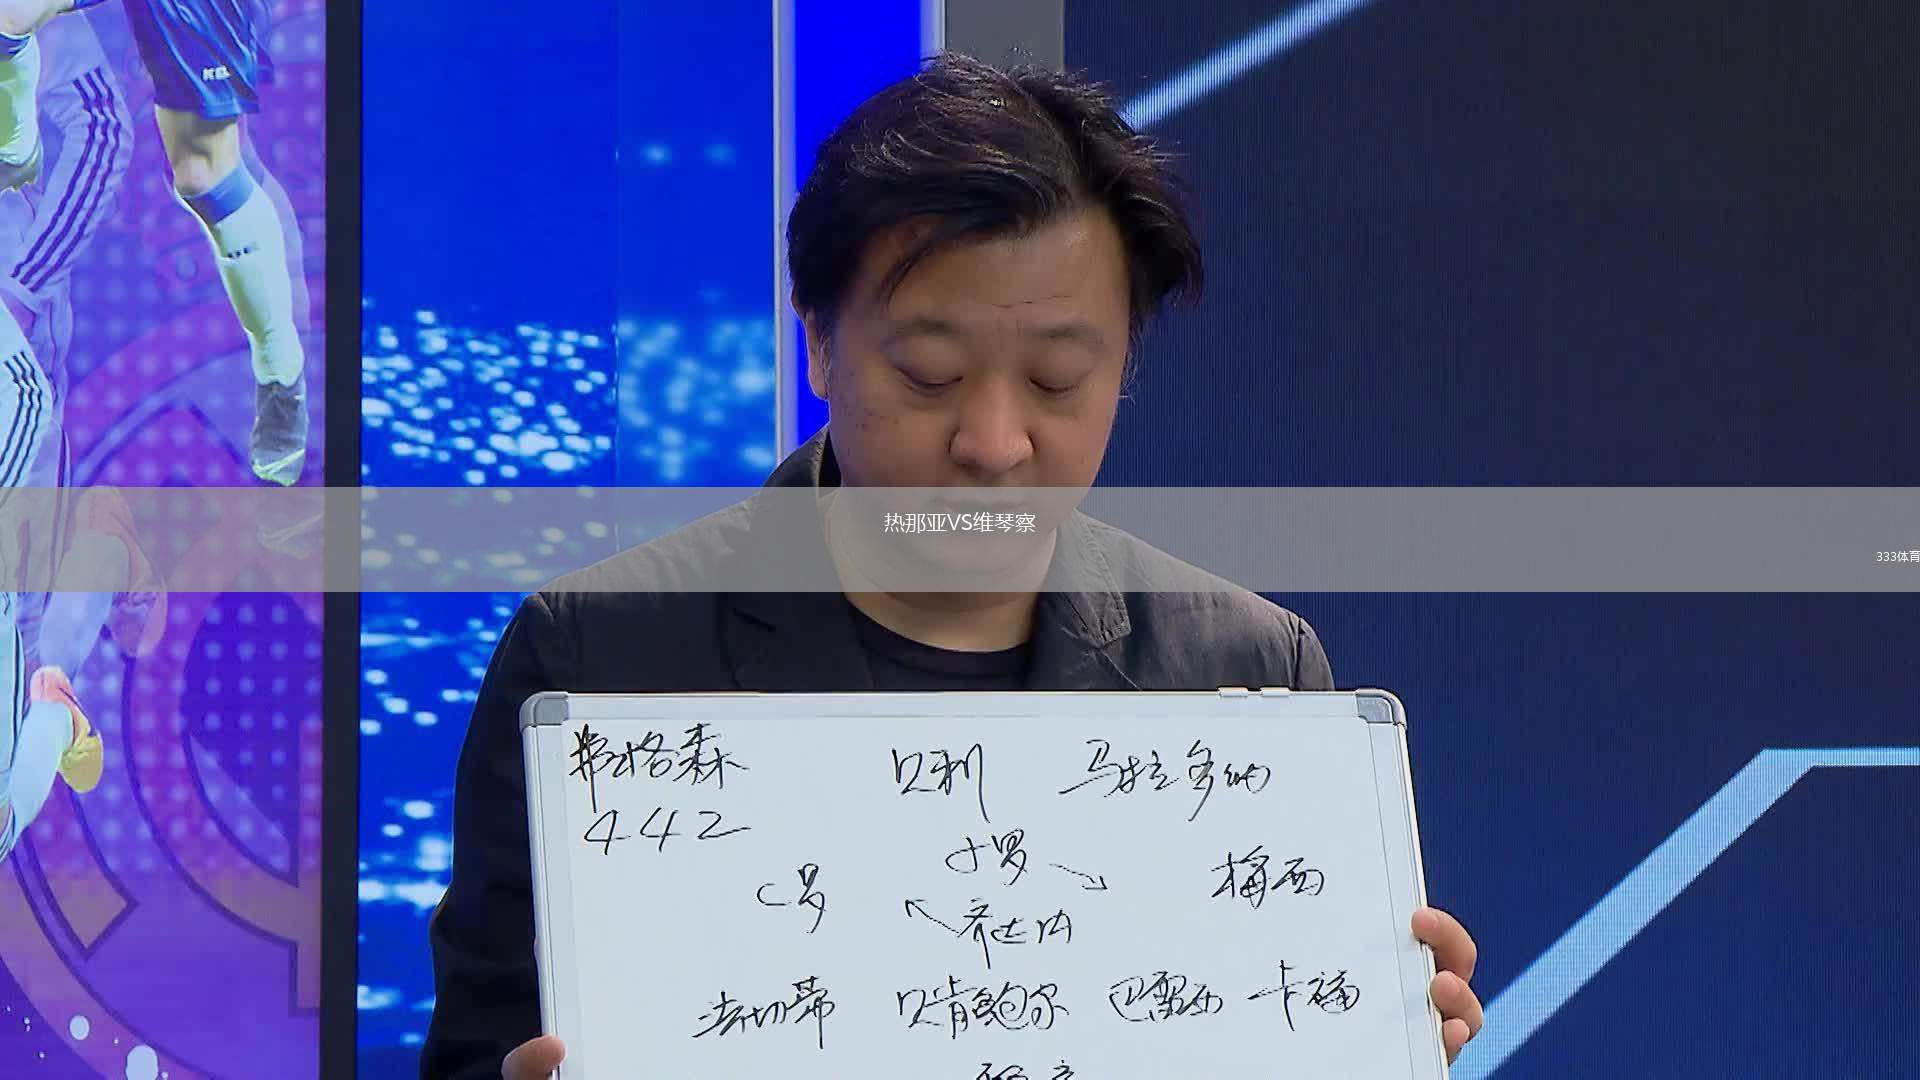 热那亚VS维琴察
333体育
弗格森 贝利 马拉多纳
442
小罗
C罗 梅西
齐达内
法切蒂 贝肯鲍尔 巴雷西 卡福